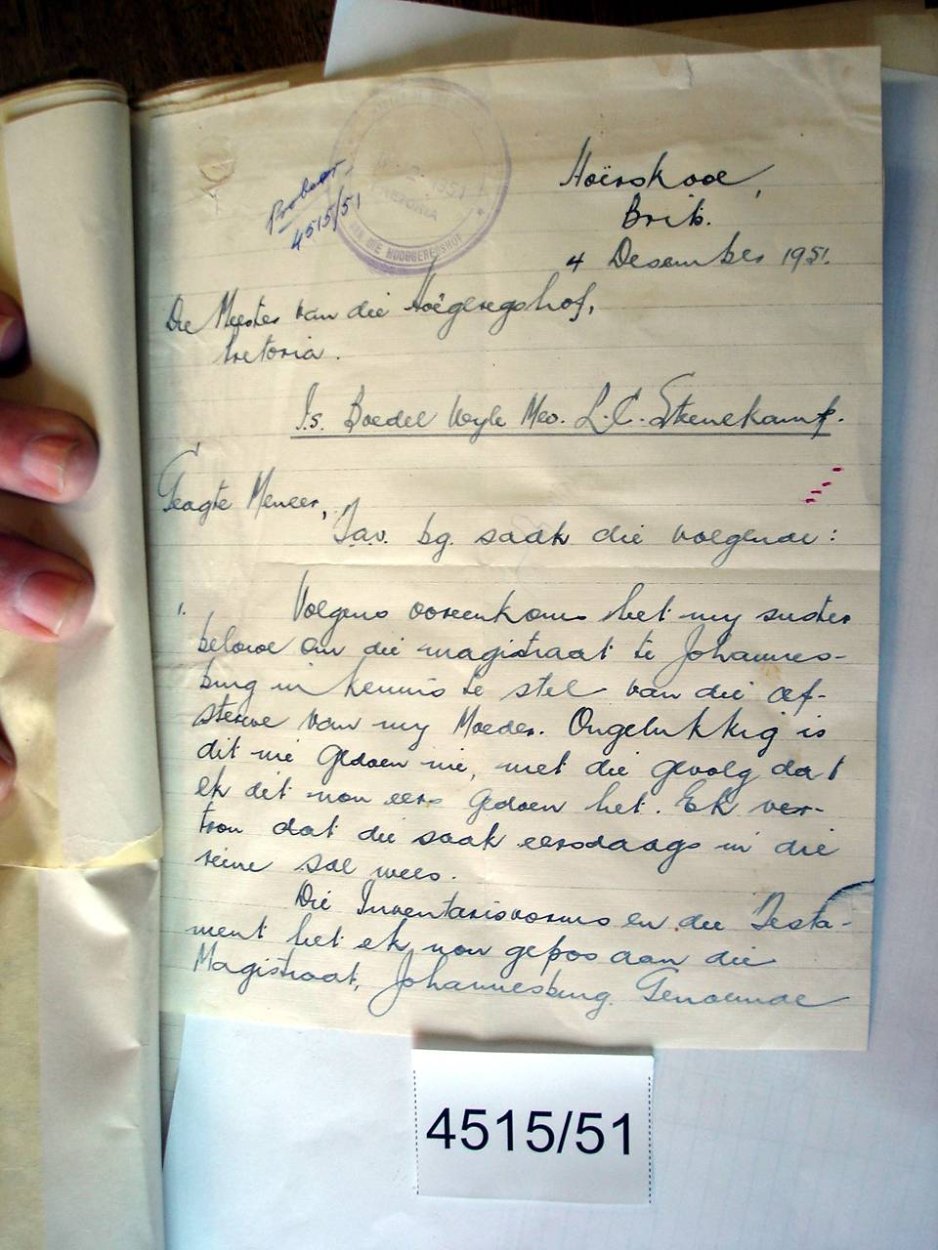 Probaat
4515/51
PRETORIA
VAN DIE HOOGGEREGSHOF
Hoërskool,
Brits.
4 Desember 1951.
Die Meester van die Hoëgeregshof,
Pretoria.
I.s. Boedel Wyle Mev. L.C. Steenekamp.
Geagte Meneer,
I.a.v. bg. saak die volgende:
1. Volgens ooreenkoms het my suster
belowe om die magistraat te Johannes-
burg in kennis te stel van die af-
sterwe van my Moeder. Ongelukkig is
dit nie gedoen nie, met die gevolg dat
ek dit nou eers gedoen het. Ek ver-
trou dat die saak eersdaags in die
reine sal wees.
Die Inventarisvorms en die Testa-
ment het ek nou gepos aan die
Magistraat, Johannesburg. Genoemde
4515/51